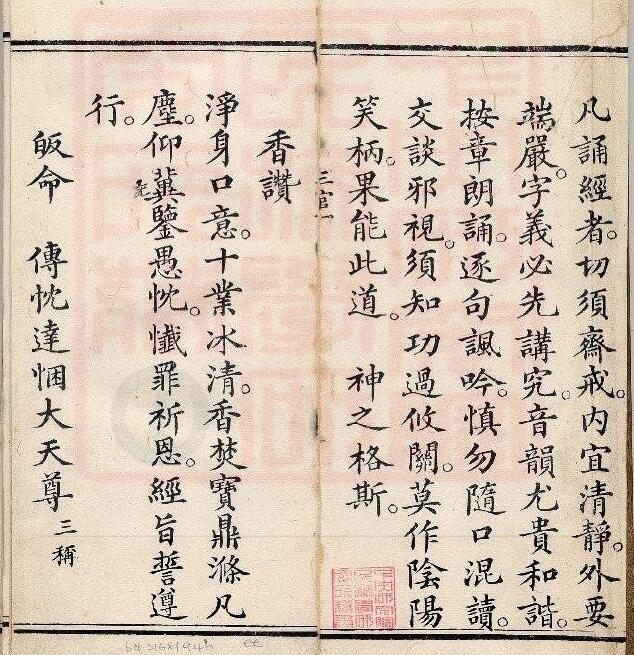 凡誦經者。切須齋戒。內宜清靜。外要
端嚴。字義必先講究。音韻尤貴和諧。
按章朗誦。逐句諷吟。慎勿隨口混讀。
交談邪視。須知功過攸關。莫作陰陽
笑柄。果能此道。 神之格斯。
三官一
香讚
淨身口意。十業冰清。香焚寶鼎滌凡
塵。仰冀鑒愚忱。懺罪祈恩。經旨誓遵
行。
皈命 傳忱達悃大天尊 三稱